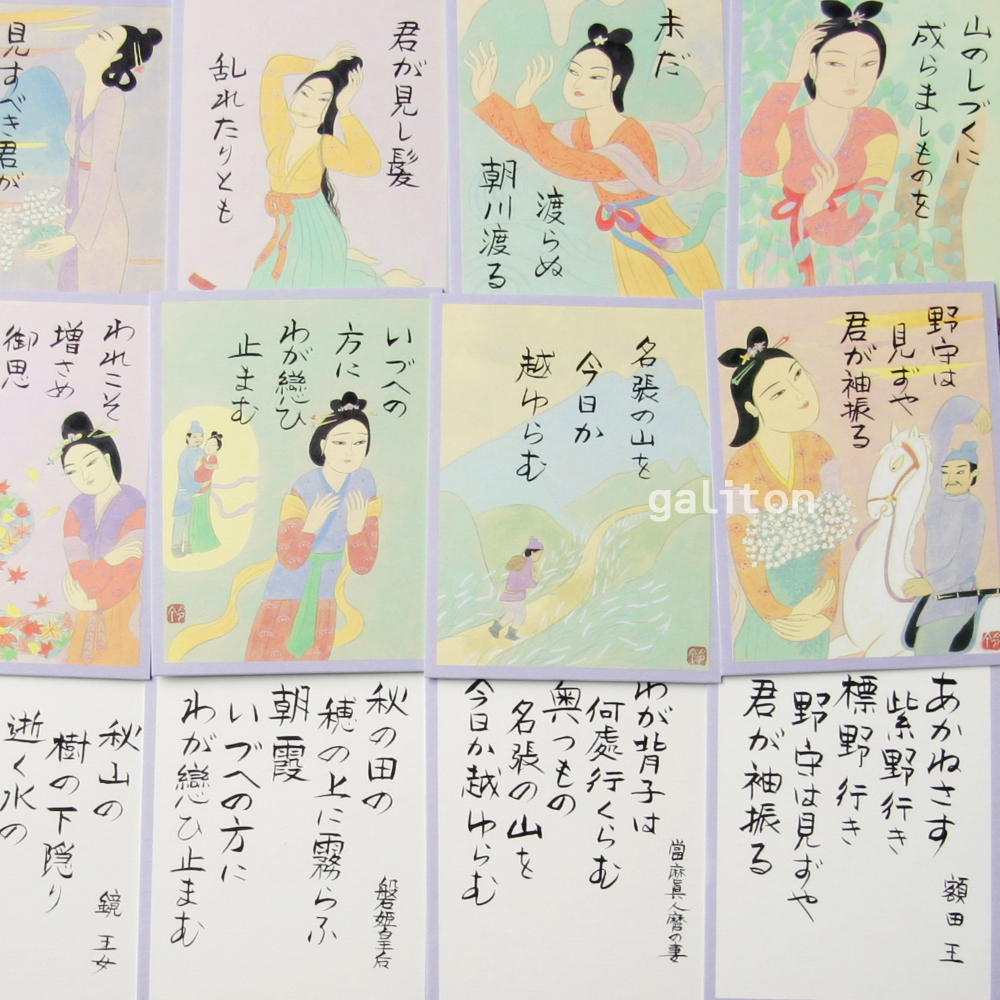 見すべき君が
君が見し髪
乱れたりとも
未だ
渡らぬ
朝川渡る
山のしづくに
成らましものを
われこそ
増さめ
御思
いづへの
方に
わが戀ひ
止まむ
名張の山を
今日か
越ゆらむ
野守は
見ずや
君が袖振る
galiton
秋山の
樹の下隠り
逝く水の
鏡王女
秋の田の
穂の上に霧らふ
朝霞
いづへの方に
わが戀ひ止まむ
磐姫皇后
わが背子は
何處行くらむ
奥つもの
名張の山を
今日か越ゆらむ
當麻眞人麿の妻
あかねさす
紫野行き
標野行き
野守は見ずや
君が袖振る
額田王